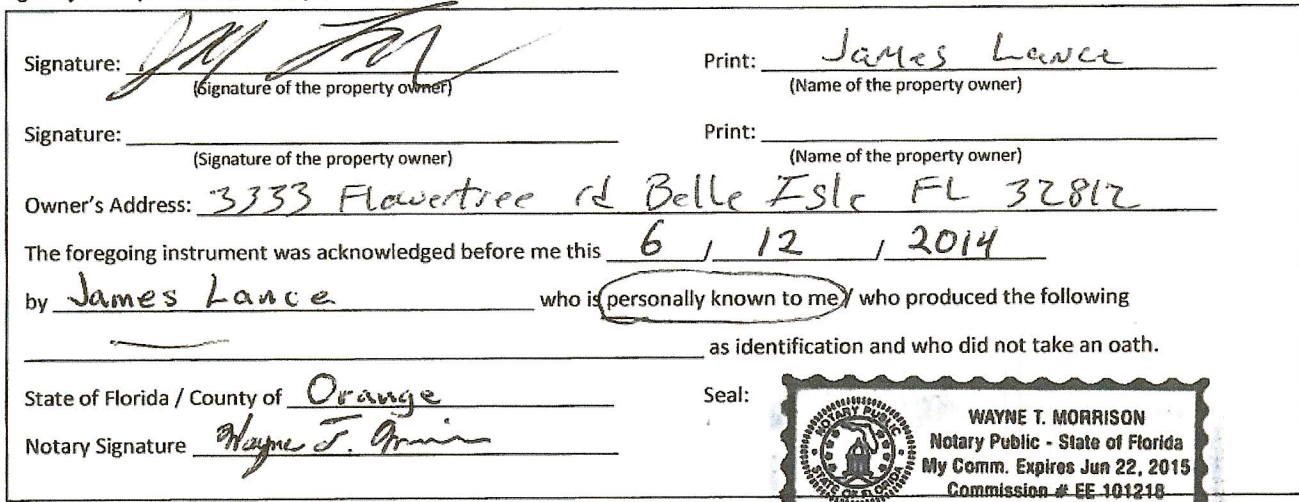 Signature: Print: James Lance
(Signature of the property owner) (Name of the property owner)
Signature: Print:
(Signature of the property owner) (Name of the property owner)
Owner's Address: 3333 Flowertree rd Belle Isle FL 32812
The foregoing instrument was acknowledged before me this 6 / 12 / 2014
by James Lance who is personally known to me / who produced the following
as identification and who did not take an oath.
State of Florida / County of Orange Seal:
Notary Signature Wayne T.
NOTARY PUBLIC
STATE OF FLORIDA
WAYNE T. MORRISON
Notary Public - State of Florida
My Comm. Expires Jun 22, 2015
Commission # EE 101218